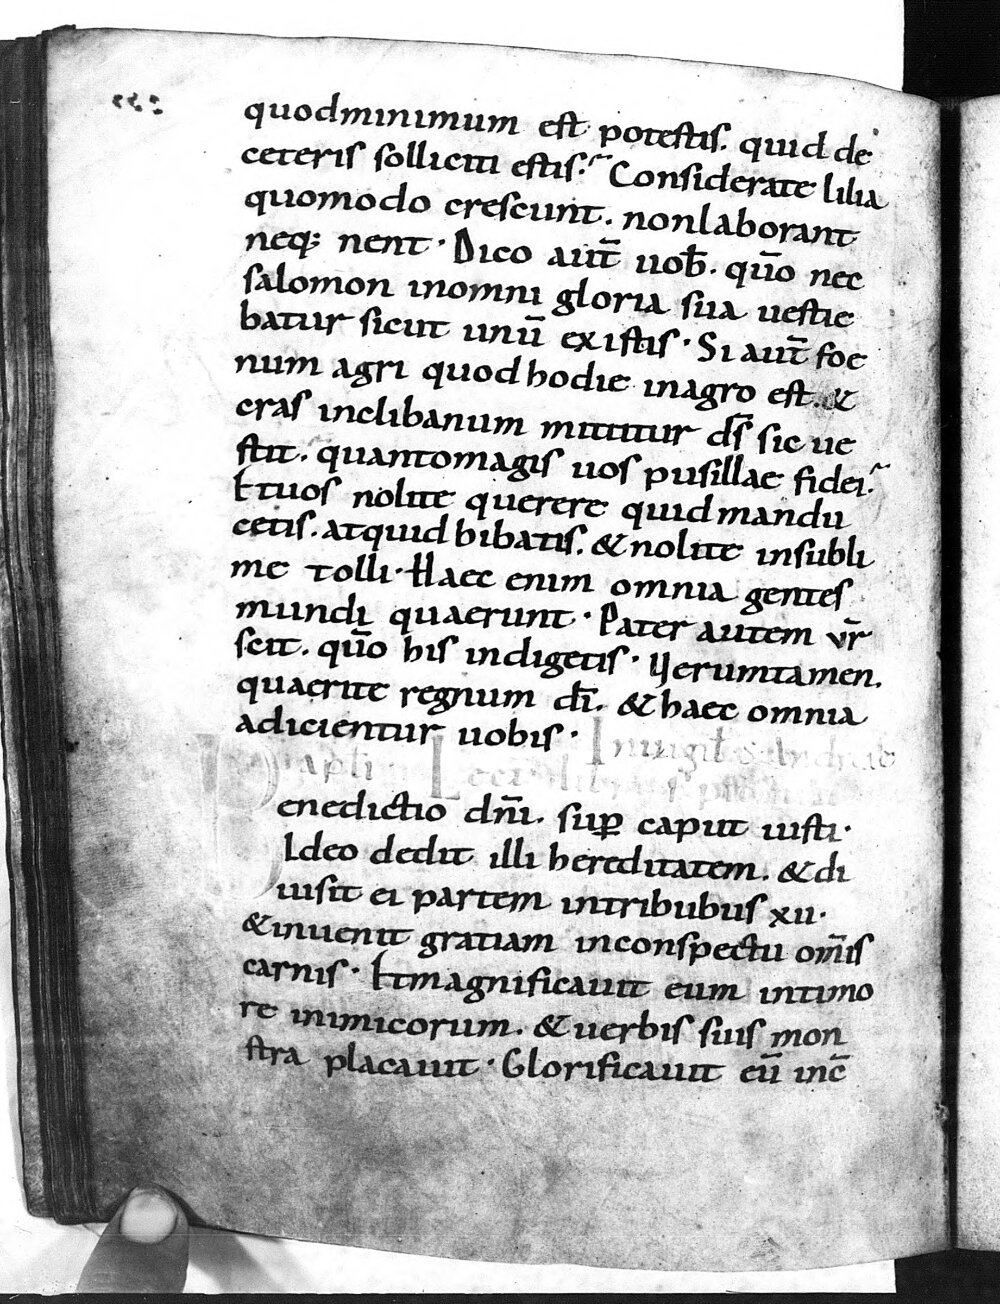 quodminimum est potestis. quid de
ceteris solliciti estis? Considerate lilia
quomodo crescunt. nonlaborant
neq; nent. Dico aut̄ uob̄. quō nec
salomon inomni gloria sua uestie
batur sicut unū existis. Si aut̄ foe
num agri quod hodie inagro est. &
cras inclibanum mittitur ds̄ sic ue
stit. quantomagis uos pusillae fidei?
Et uos nolite querere quid mandu
cetis. atquid bibatis. & nolite insubli
me tolli. Haec enim omnia gentes
mundi quaerunt. Pater autem vr̄
scit. quō his indigetis. Uerumtamen.
quaerite regnum dī. & haec omnia
adicientur uobis. In uigil S Andreae
apli Lec libri
Benedictio dn̄i. sup̱ caput iusti.
Ideo dedit illi hereditatem. & di
uisit ei partem intribubus xii.
& inuenit gratiam inconspectu om̄is
carnis. Et magnificauit eum intimo
re inimicorum. & uerbis suis mon
stra placauit. Glorificauit eū inc̄